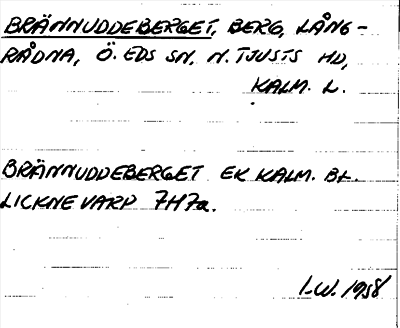 BRÄNNUDDEBERGET, BERG, LÅNG-
RÅDNA, Ö. EDS SN, N. TJUSTS HD,
KALM. L.
BRÄNNUDDEBERGET EK KALM. BL.
LICKNEVARP 7H7a.
I-W. 1958